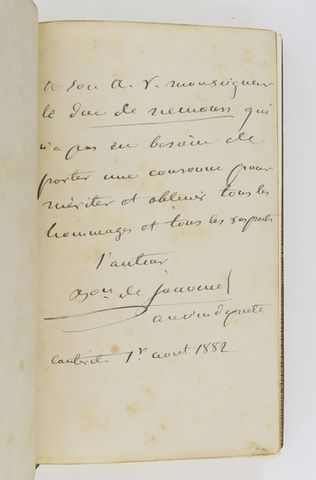 a son A. r. monseigneur
le duc de nemours qui
n'a pas eu besoin de
porter une couronne pour
mériter et obtenir tous les
hommages et tous les respects
l'auteur
Bon de
ancien député
1r aout 1882